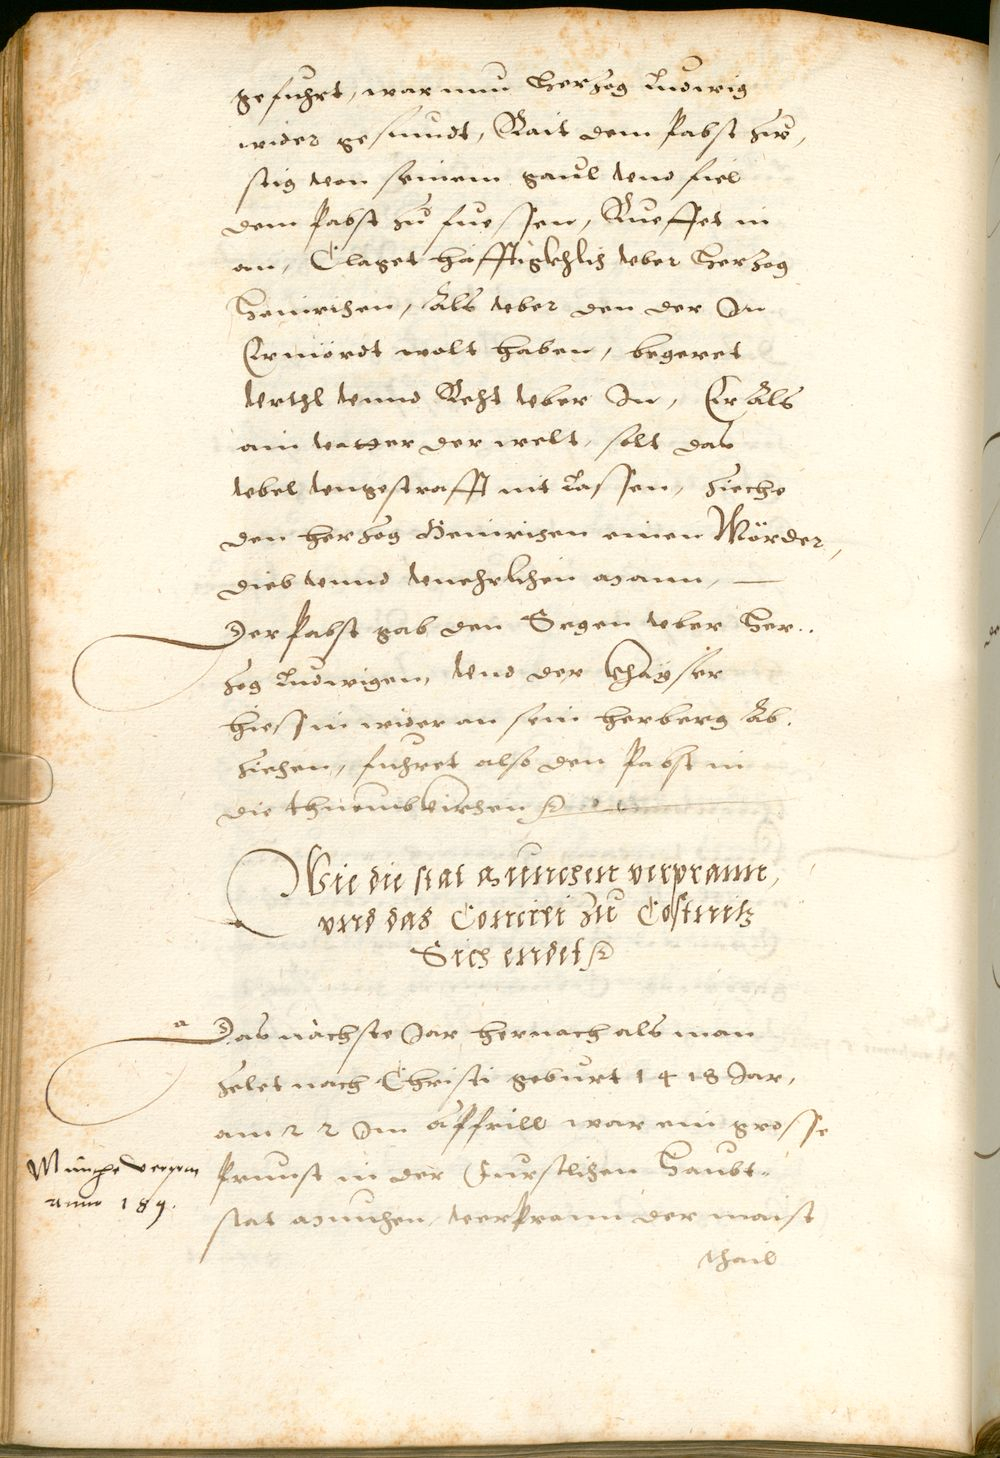 gefuhrt, war nun Herzog Ludwig
wider gesundt, Rait dem Pabst fur,
stig von seinem gaul vnd fiel
dem Pabst zu fuessen, Rueffet in
an, Claget häfftigkhlich vber Herzog
Heinrichen, Als vber den der In
Ermördt wolt haben, begeret
Vrthl vnnd Recht vber In, Er Als
ain vatter der welt, solt das
vbel vngestrafft nit Lassen, Zieche
den herzog Heinrichen einen Mörder,
dieb vnnd vnehrlichen mann,
Der Pabst gab den Segen vber Her..
zog Ludwigen, Vnd der Khayser
hiess in wider an sein herberg Ab.
ziehen, fuhret also den Pabst in
die thuembkirchen
Wie die stat München verprann,
vnd das Concili zu Costnitz
Sich endet
Das nächste Jar hernach als man
zelet nach Christi geburt 1418 Jar,
am 22 Im Affrill war ein grosse
Prunst in der Furstlichen Haubt-
stat München, verPrann der maist
thail
anno 189.